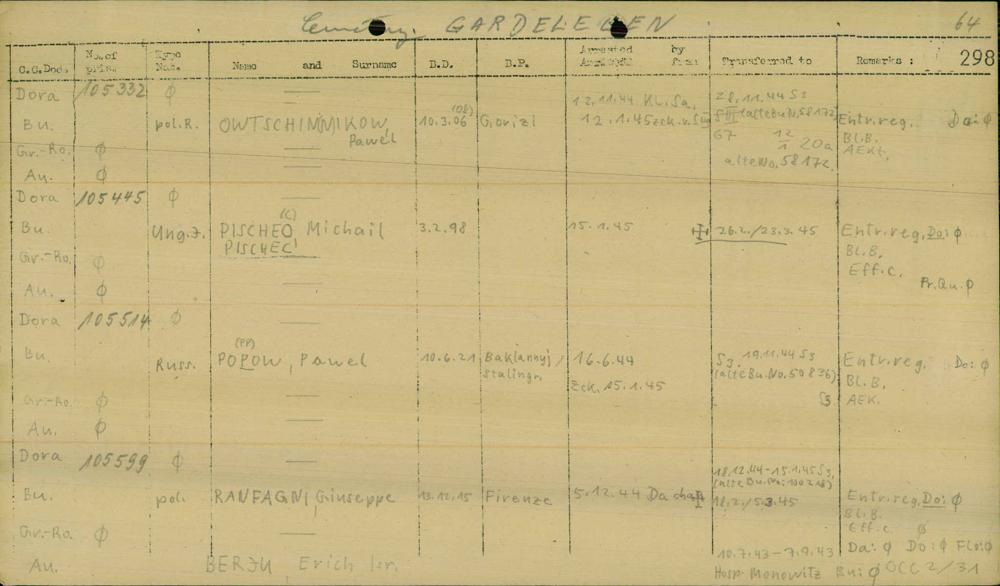 Cemetery. GARDELEGEN 64
C.C.Doc. No. of pris. Type Nat. Name and Surname B.D. B.P. Arrested by from Transferred to Remarks : 298
Dora 105332 ϕ — 12.11.44 KL.Sa. 28.11.44 S3
Bu. pol.R. OWTSCHINNIKOW, Pawel 10.3.06 (08) 12.1.45 zck. v. SIII (alte Bu.N. 58172) Entr.reg. Do: ϕ
67 12/1 20a BL.B.
Gr.-Ro. ϕ — alte No. 58172. AEK.
Au. ϕ
Dora 105445 ϕ —
Bu. Ung.J. PISCHEO (C) Michail 3.2.98 15.1.45 26.2./23.3.45 Entr.reg. Do: ϕ
PISCHEC! BL.B.
Gr.-Ro. ϕ Eff.c.
Au. ϕ — Pr.Qu. ϕ
Dora 105514 ϕ —
Bu. Russ. POPOW (PP), Pawel 10.6.21 Baklannyj / Stalingr. 16.6.44 S3. 19.11.44 S3 Entr.reg. Do: ϕ
zck. 15.1.45 (alte Bu.No. 50836) BL.B.
Gr.-Ro. ϕ — S3 AEK.
Au. ϕ
Dora 105599 ϕ — 18.12.44-15.1.45 S3,
Bu. pol. RANFAGNI, Giuseppe 13.12.15 Firenze 5.12.44 Dachau 18.2./5.3.45 Entr.reg. Do: ϕ
BL.B.
Gr.-Ro. ϕ — Eff.c. ϕ
Au. BERJU, Erich Isr. 10.7.43 - 7.9.43 Da: ϕ Do: ϕ Flo: ϕ
Hosp. Monowitz Bu: ϕ OCC 2/31